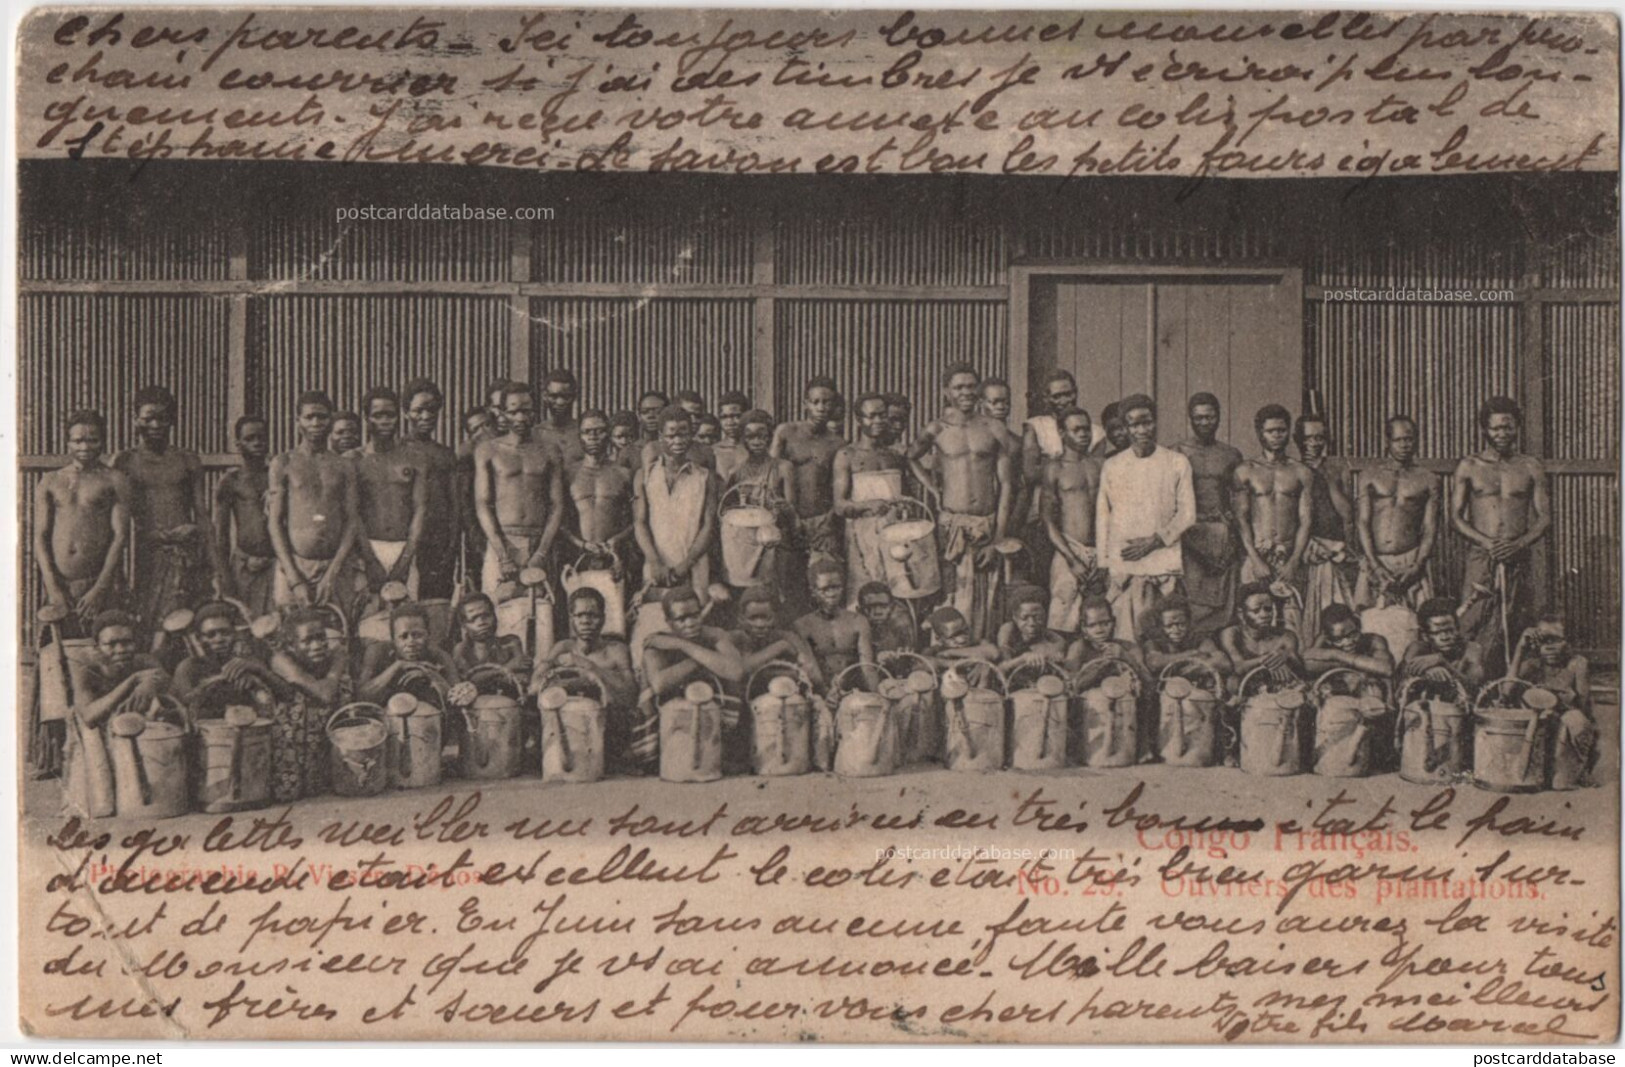 chers parents - Ici toujours bonnes nouvelles par pro-
chain courrier si j'ai des timbres je vs écrirai plus lon-
guements. J'ai reçu votre annexe au colis postal de
Stéphanie merci - Le savon est bon les petits fours également
postcarddatabase.com
postcarddatabase.com
les galettes meiller nu sont arrivées en très bonne état le pain
Congo Français.
postcarddatabase.com
d'amende était excellent le colis était très bien garni sur-
Photographie R. Visser, Dépos.
No. 29. Ouvriers des plantations.
tout de papier. En Juin sans aucune faute vous aurez la visite
du Monsieur que je vs ai annoncé - Mille baisers pour tous
mes frères et sœurs et pour vous chers parents mes meilleurs
Votre fils Marcel
www.delcampe.net
postcarddatabase